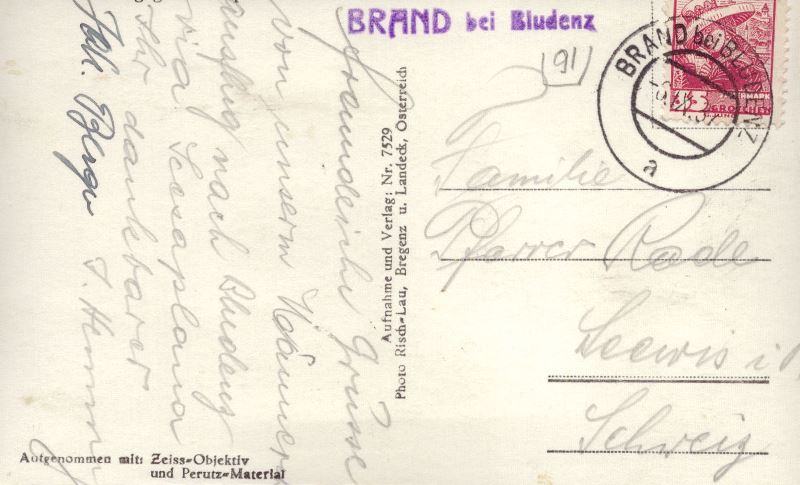 BRAND bei Bludenz
(91)
BRAND bei BLUDENZ
a
GROSCHEN
Freundliche Grüsse
von unserm Männer
ausflug nach Bludenz
via Scesaplana
Ihr dankbarer
J.
Aufnahme und Verlag: Nr. 7529
Photo Risch-Lau, Bregenz u. Landeck, Österreich
Familie
Pfarrer Rade
Seewis i
Schweiz
Aufgenommen mit: Zeiss-Objektiv
und Perutz-Material